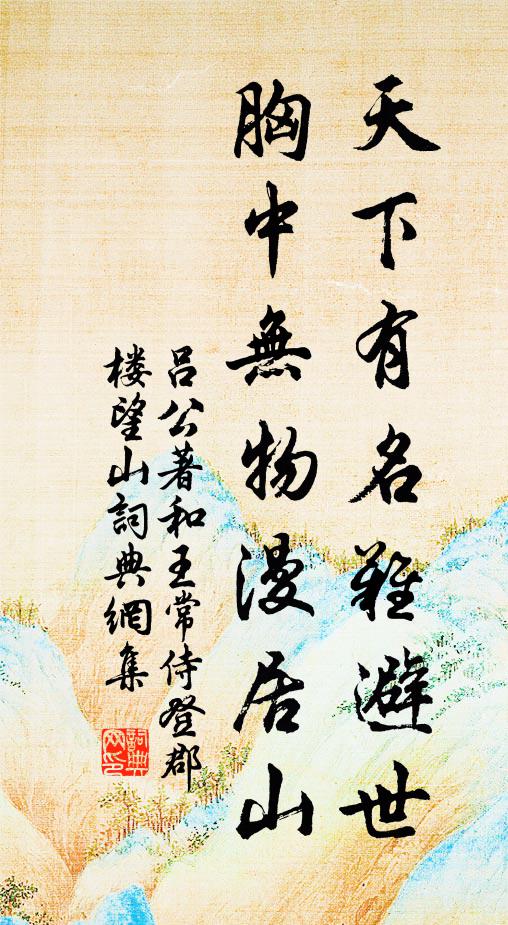 天下有名難避世
胸中無物漫居山
吕公著和王常侍登郡
楼望山詞典網集